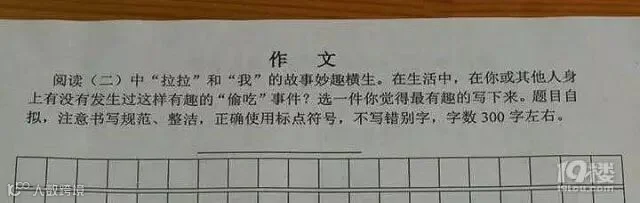 作 文
阅读（二）中“拉拉”和“我”的故事妙趣横生。在生活中，在你或其他人身
上有没有发生过这样有趣的“偷吃”事件？选一件你觉得最有趣的写下来。题目自
拟，注意书写规范、整洁，正确使用标点符号，不写错别字，字数 300 字左右。
19楼
大数跨境